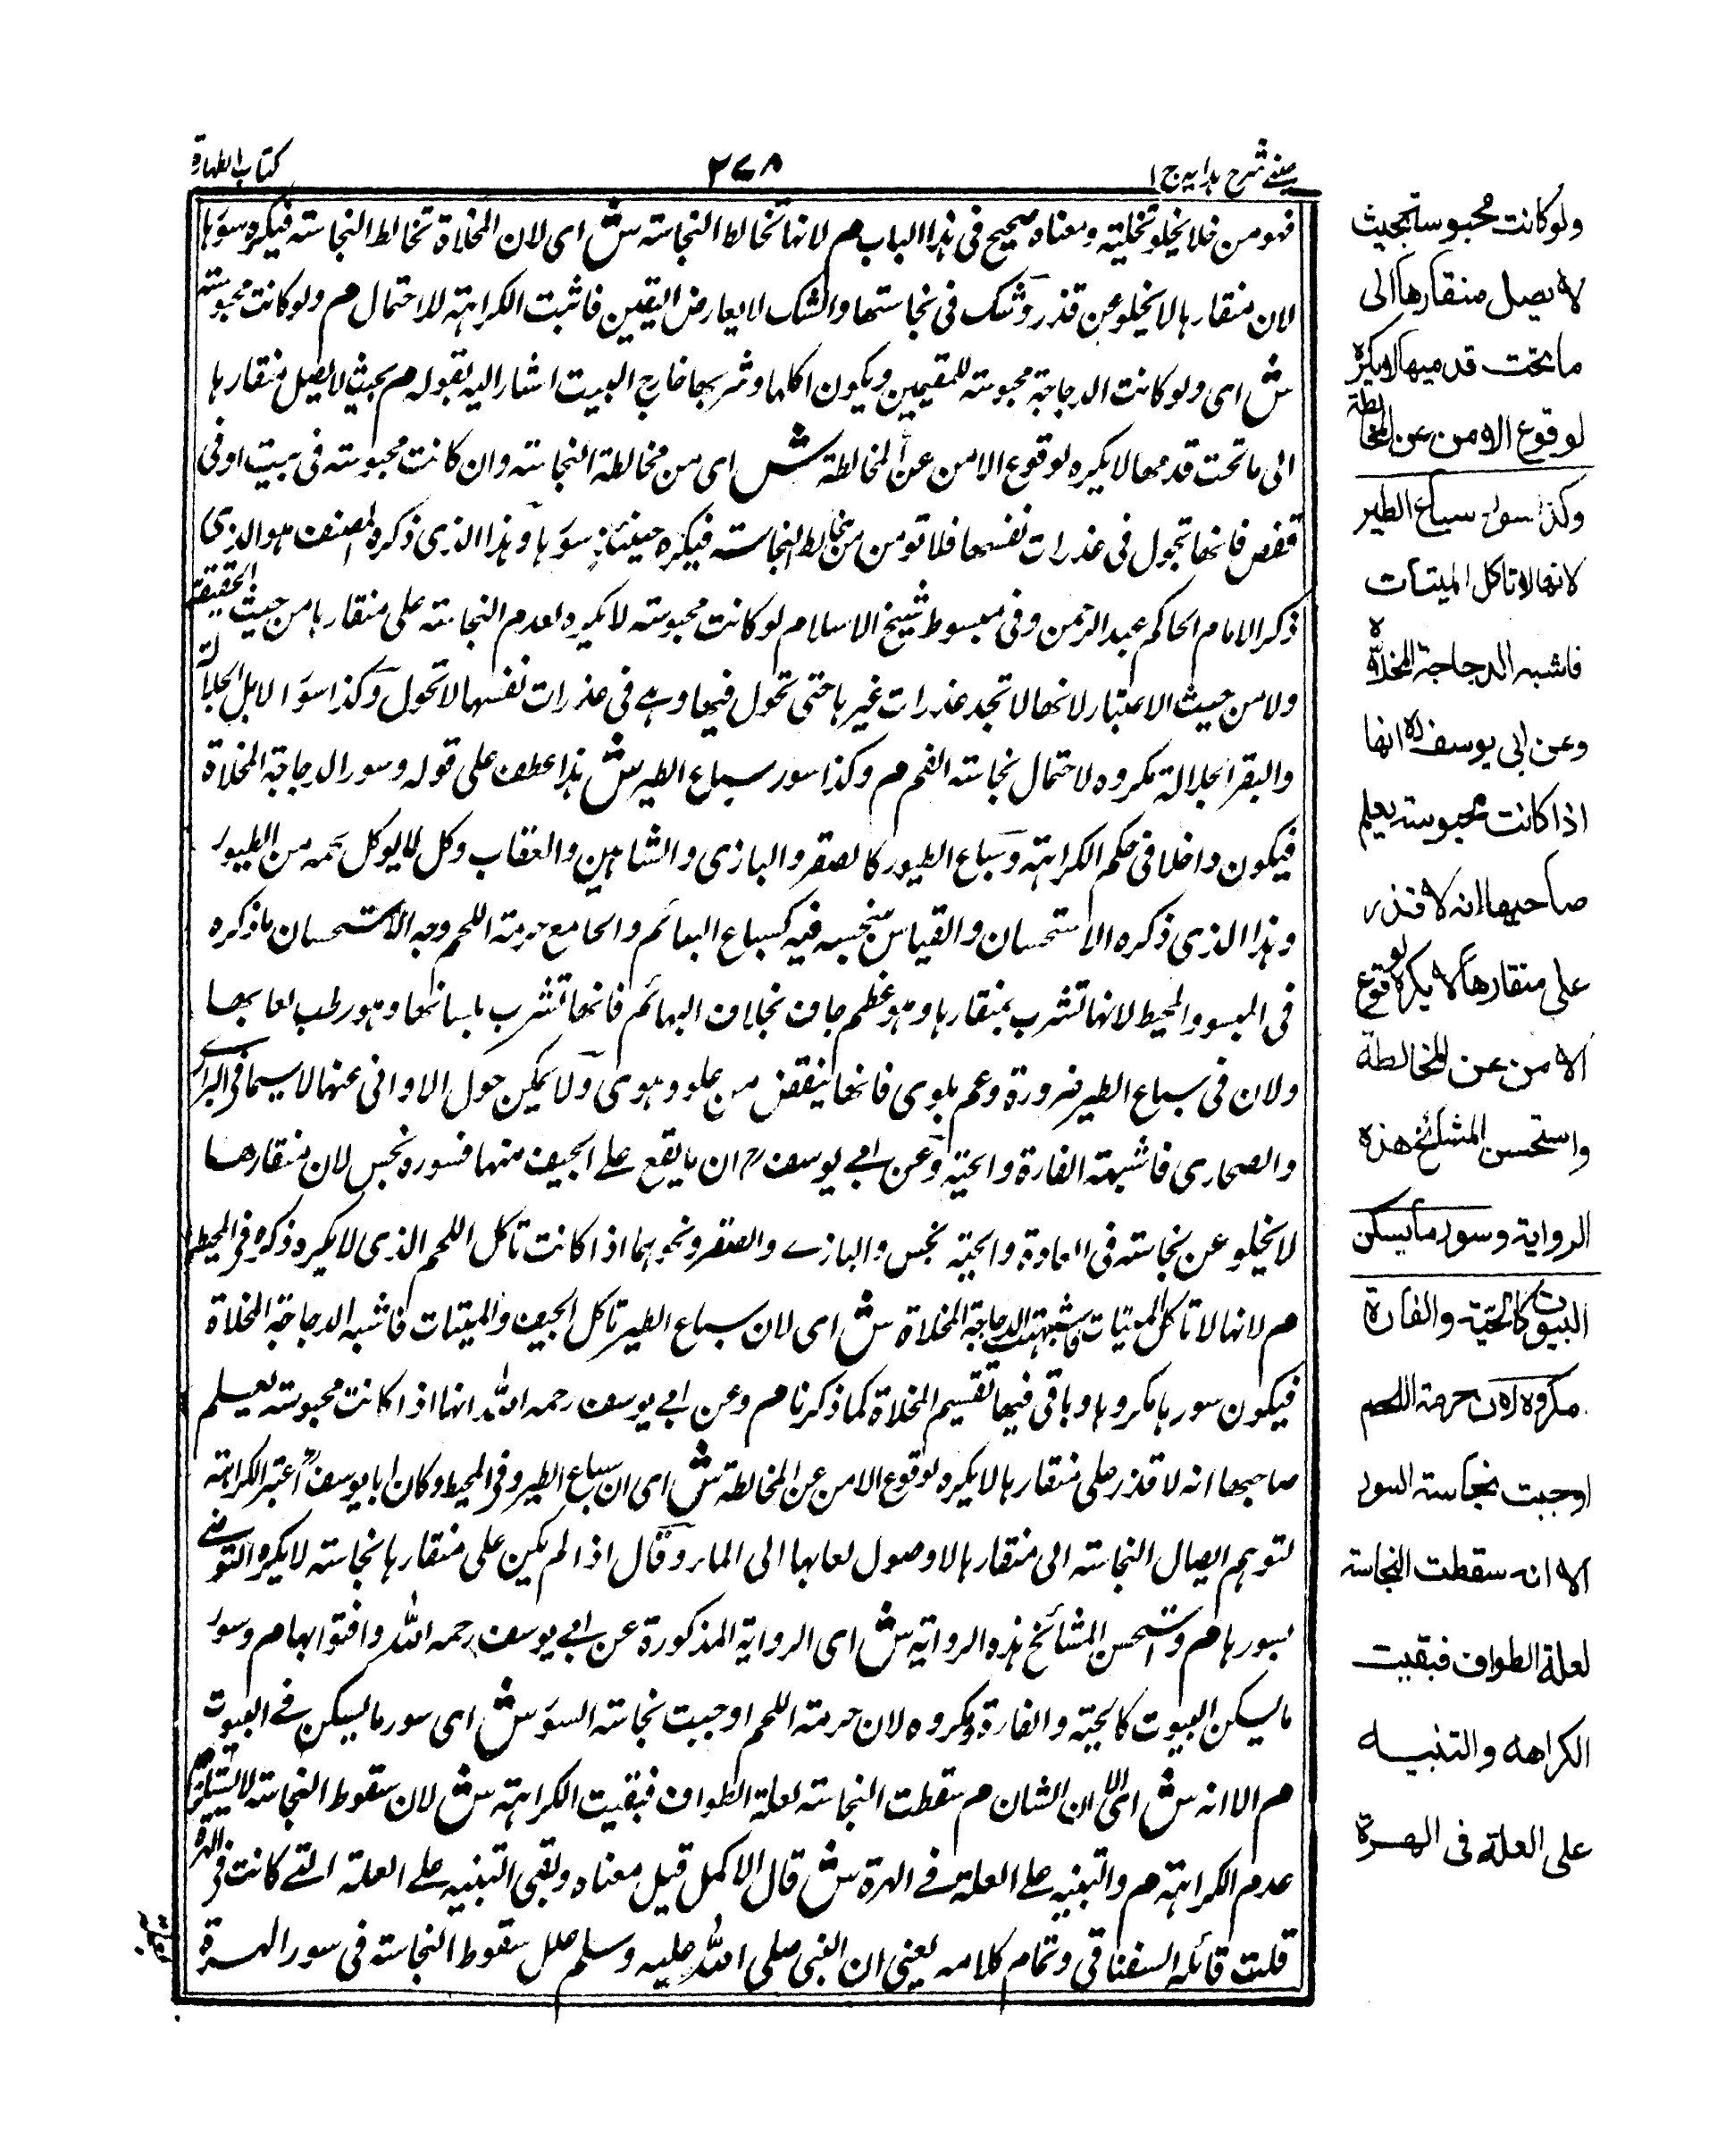 عينى شرح هدايه ج ١
٢٧٨
كتاب الطهارة
فهو من خلا يخلو تخلية ومعناه صحيح فى هذا الباب م لانها تخالط النجاسة ش اى لان المخلاة تخالط النجاسة فيكره سؤرها
لان منقارها لا يخلو عن قذر وشك فى نجاستها والشك لا يعارض اليقين فاثبت الكراهة للاحتمال م ولو كانت محبوسة
ش اى ولو كانت الدجاجة محبوسة للتسمين ويكون اكلها وشربها خارج البيت اشار اليه بقوله م بحيث لا يصل منقارها
الى ما تحت قدميها لا يكره لوقوع الامن عن المخالطة ش اى من مخالطة النجاسة وان كانت محبوسة فى بيت او فى
قفص فانها تجول فى عذرات نفسها فلا تومن من مخالطة النجاسة فيكره حينئذ سؤرها وهذا الذى ذكره المصنف هو الذى
ذكر الامام الحاكم عبد الرحمن وفى مبسوط شيخ الاسلام لو كانت محبوسة لا يكره لعدم النجاسة على منقارها من حيث الحقيقة
ولا من حيث الاعتبار لانها لا تجد عذرات غيرها حتى تجول فيها وهى فى عذرات نفسها لا تجول وكذا سؤر الابل الجلالة
والبقر الجلالة مكروه لاحتمال نجاسة الفم م وكذا سور سباع الطير ش هذا عطف على قوله وسور الدجاجة المخلاة
فيكون داخلا فى حكم الكراهة وسباع الطيور كالصقر والبازى والشاهين والعقاب وكل ما لا يوكل لحمه من الطيور
وهذا الذى ذكره الاستحسان والقياس نجسه فيه كسباع البهائم والجامع حرمة اللحم وجه الاستحسان ما ذكره
فى المبسوط والمحيط لانها تشرب بمنقارها وهو عظم جاف بخلاف البهائم فانها تشرب بلسانها وهو رطب لعابها
ولان فى سباع الطير ضرورة وعم بلوى فانها ينقض من علو وهوى ولا يمكن حول الاوانى عنها لا سيما فى البرارى
والصحارى فاشبهت الفارة والحية وعن ابى يوسف رح ان ما يقع على الجيف منها فسوره نجس لان منقارها
لا يخلو عن نجاسة فى العادة والحية نجس والبازى والصقر ونحوهما اذا كانت تاكل اللحم الذى لا يكره ذكره فى المحيط
م لانها لا تاكل الميتات فاشبهت الدجاجة المخلاة ش اى لان سباع الطير تاكل الجيف والميتات فاشبه الدجاجة المخلاة
فيكون سورها مكروها وباقى فيها تقسيم المخلاة كما ذكرنا م وعن ابى يوسف رحمه الله انها اذا كانت محبوسة يعلم
صاحبها انه لا قذر على منقارها لا يكره لوقوع الامن عن المخالطة ش اى ان سباع الطير وفى المحيط وكان ابا يوسف رح اعتبر الكراهة
لتوهم ايصال النجاسة الى منقارها لا وصول لعابها الى الماء وقال اذا لم يكن على منقارها نجاسة لا يكره التوضى
بسورها م واستحسن المشائخ هذه الرواية ش اى الرواية المذكورة عن ابى يوسف رحمه الله وافتوا بها م وسور
ما يسكن البيوت كالحية والفارة مكروه لان حرمة اللحم اوجبت نجاسة السؤر ش اى سور ما يسكن فى البيوت
م الا انه ش اى الا ان الشان م سقطت النجاسة لعلة الطواف فبقيت الكراهة ش لان سقوط النجاسة لا يستلزم
عدم الكراهة م والتنبيه على العلة فى الهرة ش قال الاكمل قيل معناه وبقى التنبيه على العلة التى كانت فى الهرة
قلت قائله السغناقى وتمام كلامه يعنى ان النبى صلى الله عليه وسلم علل سقوط النجاسة فى سور الهرة
ولو كانت محبوسة بحيث
لا يصل منقارها الى
ما تحت قدميها لا يكره
لوقوع الامن عن المخالطة
وكذا سور سباع الطير
لانها لا تاكل الميتات
فاشبه الدجاجة المخلاة
وعن ابى يوسف رح انها
اذا كانت محبوسة يعلم
صاحبها انه لا قذر
على منقارها لا يكره لوقوع
الامن عن المخالطة
واستحسن المشائخ هذه
الرواية وسور ما يسكن
البيوت كالحية والفارة
مكروه لان حرمة اللحم
اوجبت نجاسة السور
الا انه سقطت النجاسة
لعلة الطواف فبقيت
الكراهة والتنبيه
على العلة فى الهرة